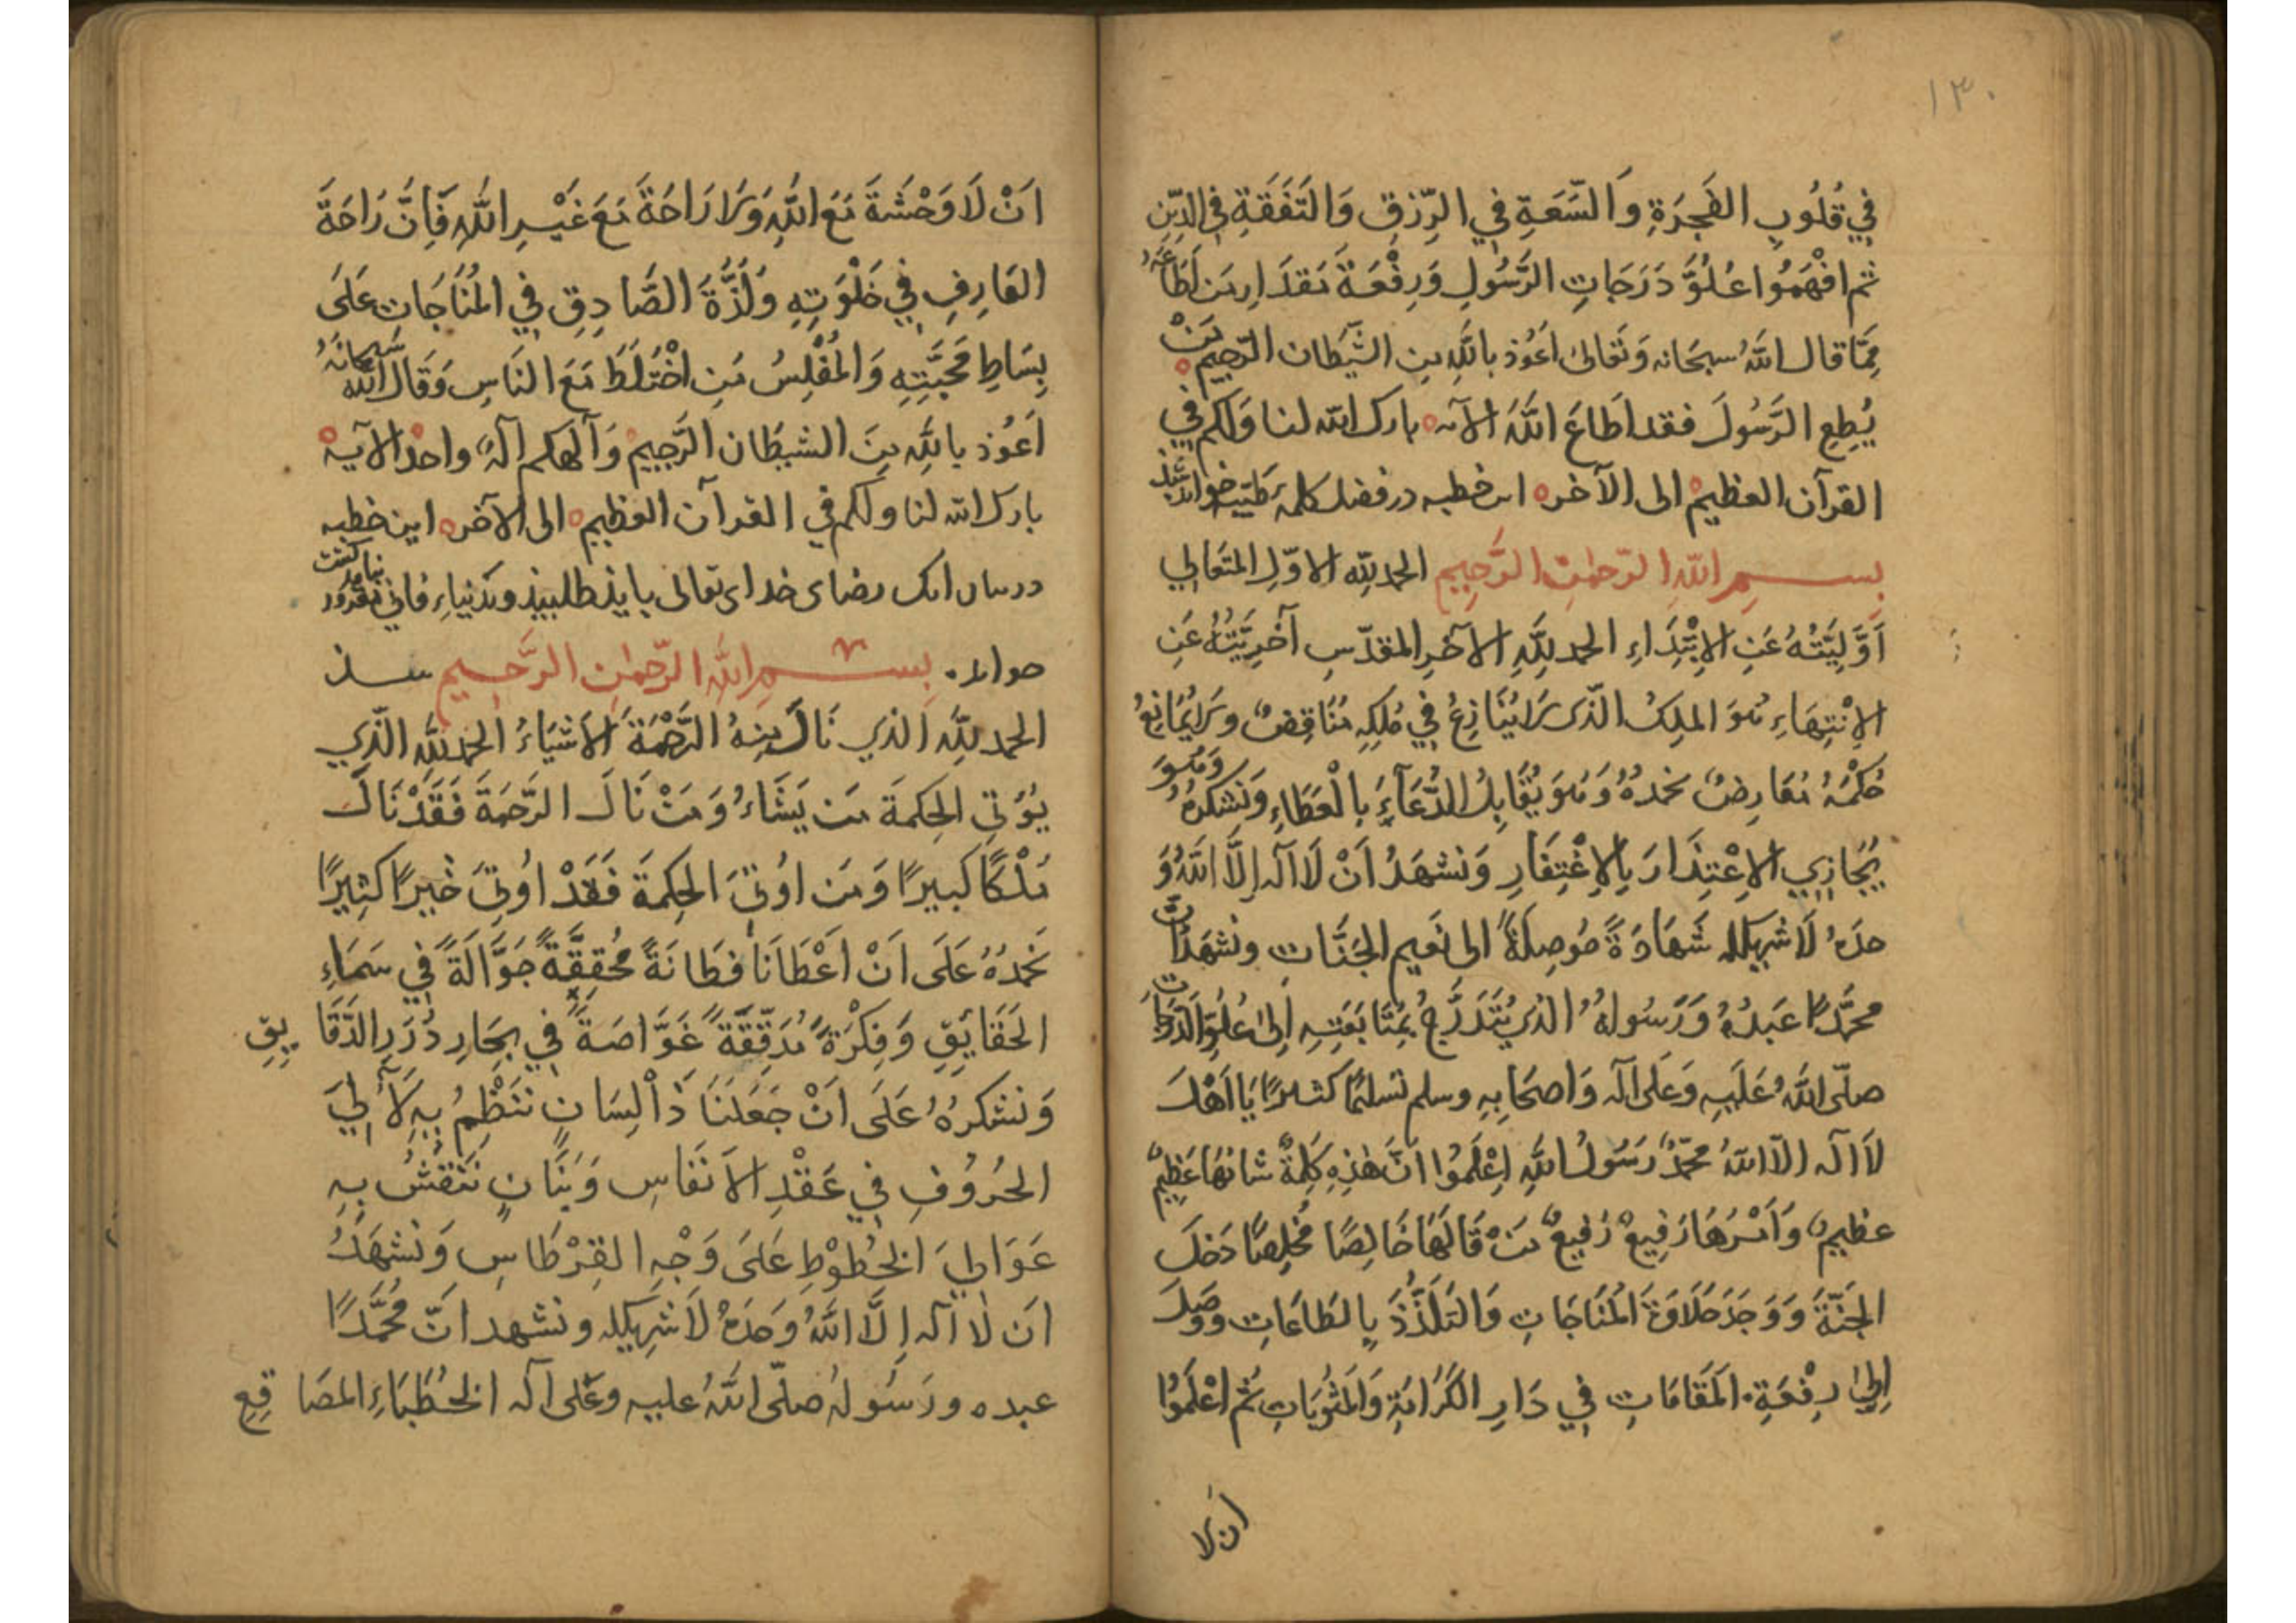 ١٣٠
فِي قُلُوبِ الفَجَرَةِ وَالسَّعَةِ فِي الرِّزقِ وَالتَّفَقَهِ فِي الدِّينِ
ثم افْهَمُوا عُلُوَّ دَرَجَاتِ الرَّسُولِ وَرِفْعَةَ مَقدَارِ مَن اَطَاعَهُ
مِمَّا قال اللهُ سبحَانه وَتَعَالىٰ اَعُوذ باللهِ مِن الشَّيطَان الرَّجِيم مَنْ
يُطِعِ الرَّسُولَ فقد اَطَاعَ اللهَ الآيه بارك الله لنا وَلكم فِي
القرآن العظيم الى الآخره اين خطبه در فضل كلمهٔ طيّب خوانند
بِسمِ اللهِ الرّحمٰنِ الرَّحِيمِ الحمد للّٰه الاوّلِ المتَعَالِي
اَوَّلِيَّتُهُ عَنِ الاِبْتِدَاءِ الحمد لِلّٰهِ الآخرِ المقدّسِ آخرِيَّتُهُ عَنِ
الاِنْتِهَاءِ هُوَ الملِكُ الّذى لَا يُنَازِعُ فِي مُلكِهِ مُنَاقِضٌ وَلَا يُمَانِعُ
حُكْمَهُ مُعَارِضٌ نحمدُهُ وَهُوَ يُقَابِلُ الدُّعَآءَ بِالْعَطَاءِ وَنَشكرُهُ وَهُوَ
يُجَازِي الاِعْتِذَارَ بِالاِغْتِفَارِ وَنشهَدُ اَنْ لَا آلٰه اِلَّا اللهُ وَ
حدَهُ لَا شريكله شَهَادَةً مُوصِلَةً الى نَعِيم الجنَّات ونشهَدُ اَنَّ
محمَّدًا عَبدُهُ وَرَسُولهُ الذي يُتَدَرَّجُ بِمُتَابَعَتِهِ اِلىٰ عُلُوِّ الدَّرَجَاتِ
صلّى اللهُ عَلَيهِ وَعَلى آله وَاصحَابِهِ وسلم تسلِيمًا كثيرًا يَا اَهْلَ
لَا آلٰه الّا اللهُ محمّدٌ رَسُولُ اللهِ اِعْلَمُوا انَّ هٰذِهِ كَلِمَةٌ شانُهَا عَظِيمٌ
عظيمٌ وَاَمْرُهَا رَفِيعٌ رَفِيعٌ مَنْ قَالَهَا خَالِصًا مُخلِصًا دَخَلَ
الجنّةَ وَوَجَدَ حَلَاوَةَ المُنَاجَاتِ وَالتَلَذُّذَ بِالطَاعَاتِ وَوَصَلَ
اِلىٰ رِفْعَةِ المَقَامَاتِ فِي دَارِ الكَرَامَةِ وَالمَثُوبَاتِ ثم اعْلَمُوا
ان لا
اَنْ لَا وَحْشَةَ مَعَ اللهِ وَلَا رَاحَةَ مَعَ غَيْرِ اللهِ فَاِنَّ رَاحَةَ
العَارِفِ فِي خَلْوَتِهِ وَلَذَّةَ الصَّادِقِ فِي المُنَاجَاتِ عَلَى
بِسَاطِ مَحَبَّتِهِ وَالمُفْلِسُ مَنِ اخْتَلَطَ مَعَ النَاسِ وَقَالَ اللهُ سُبحَانَهُ
اَعُوذ بِاللهِ مِنَ الشيطَان الرَّجِيم وَآلٰهكم آلٰهٌ واحدٌ الآيه
بارك الله لنا ولكم في القرآن العظيم الى الآخره اين خطبه
در بيان انك رضاى خداى تعالى بايذ طلبيذ وبَدُنياءِ فاني مغرور نبايد گشت
خوانند بِسمِ اللهِ الرّحمٰنِ الرَّحِيمِ
الحمد لِلّٰهِ الذي نَالَ مِنهُ الرَّحْمَةَ الاَشيَاءُ الحمد لِلّٰه الّذِي
يُؤتِي الحِكمَةَ مَن يَشَاءُ وَمَنْ نَالَ الرَّحمَةَ فَقَدْ نَالَ
مُلْكًا كبيرًا وَمَن اُوتِيَ الحِكمَةَ فَقَدْ اُوتِيَ خَيرًا كثِيرًا
نَحمدُهُ عَلَى اَنْ اَعْطَانَا فطَانَةً مُحَقِقَةً جَوَّالَةً فِي سَمَاءِ
الحَقَائِقِ وَفِكرَةً مُدَقِّقَةً غَوَّاصَةً فِي بِحَارِ دُرَرِ الدَّقَايِقِ
وَنشكرُهُ عَلَى اَنْ جَعَلَنَا ذَا لِسَانٍ نَنْظِمُ بِهِ لَآلِيَ
الحُرُوفِ فِي عَقْدِ الاَنفَاسِ وَبَنَانٍ نَنْقشُ بِهِ
عَوَاليَ الخُطُوطِ عَلَى وَجْهِ القِرْطَاسِ وَنشهَدُ
ان لَا آلٰه اِلَّا اللهُ وَحدَهُ لَا شرِيكله ونشهد انّ مُحَمَّدًا
عبده ورَسُولهُ صلّى اللهُ عليه وعَلى آله الخُطَبَاءِ المصَاقِعِ